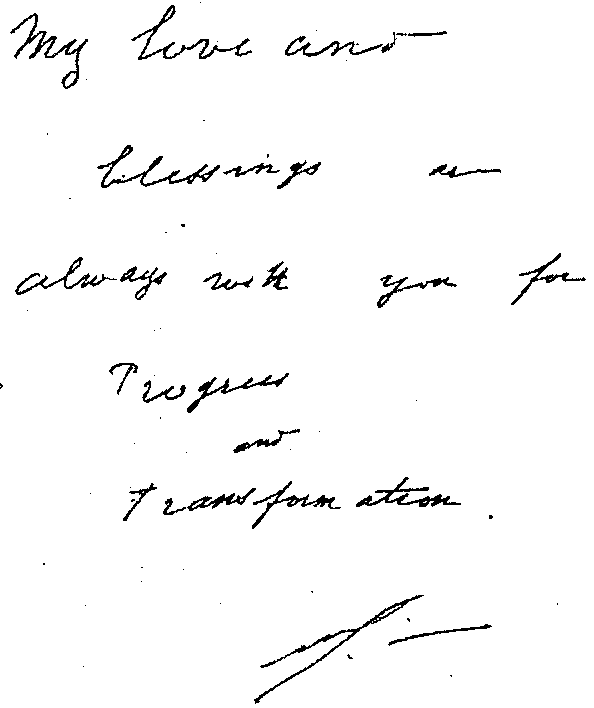 My love and
blessings are
always with you for
Progress
and
Transformation.